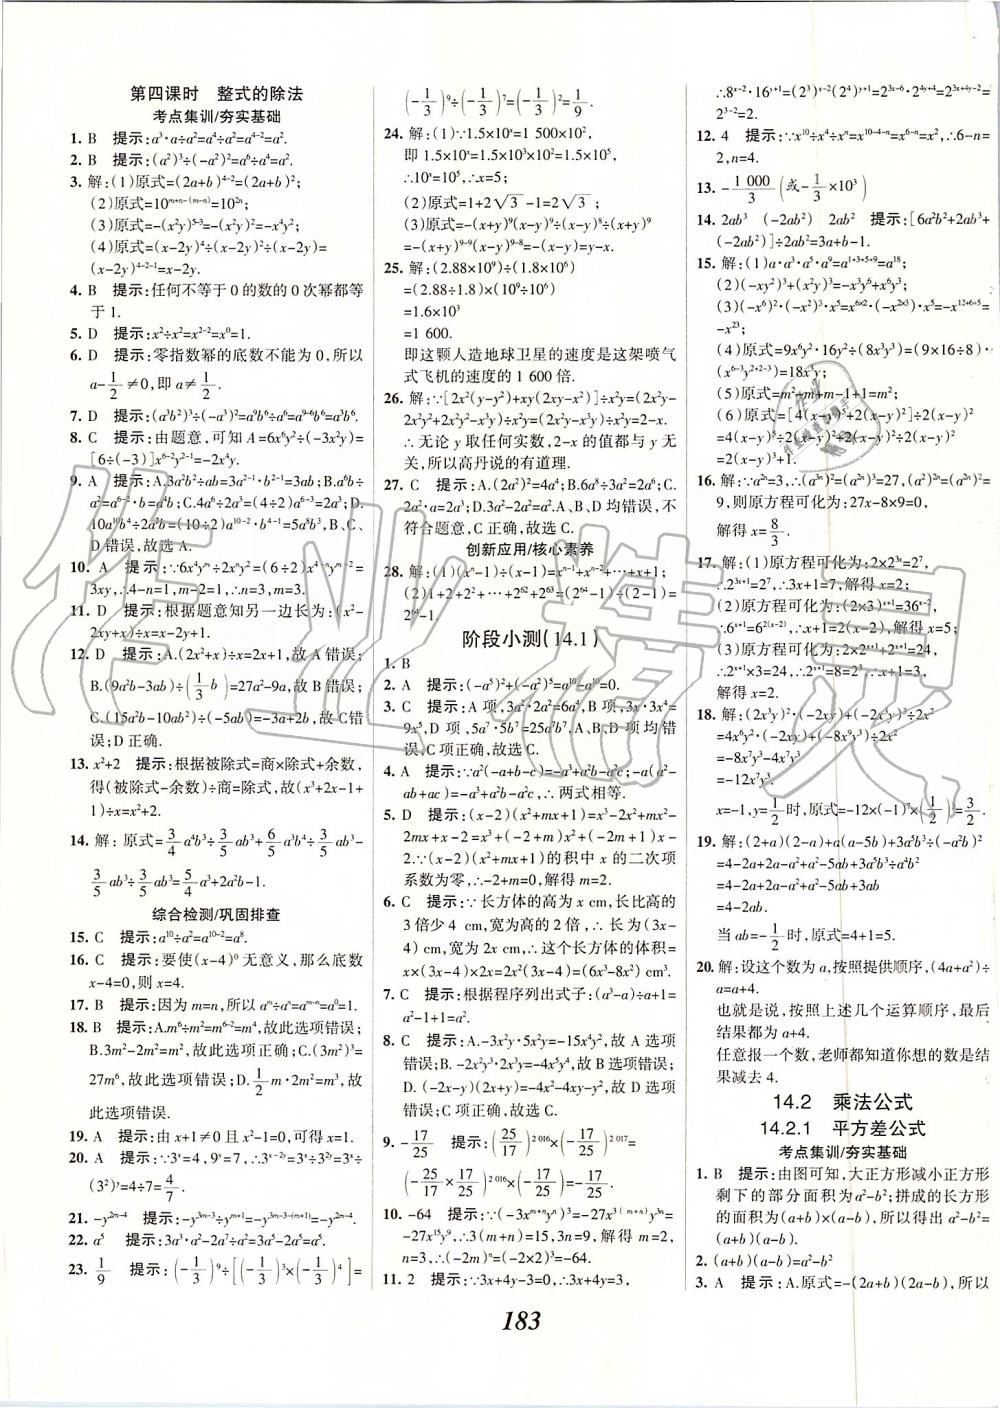 第四课时　整式的除法
考点集训/夯实基础
1. B　提示:a³·a÷a²=a⁴÷a²=a⁴⁻²=a².
2. B　提示:(a²)³÷(-a²)²=a⁶÷a⁴=a².
3. 解:(1)原式=(2a+b)⁴⁻²=(2a+b)²;
(2)原式=10^{m+n-(m-n)}=10²ⁿ;
(3)原式=-(x²y)⁵⁻³=-(x²y)²=-x⁴y²;
(4)原式=(x-2y)⁴÷(x-2y)²÷(x-2y)=
(x-2y)⁴⁻²⁻¹=x-2y.
4. B　提示:任何不等于 0 的数的 0 次幂都等
于 1.
5. D　提示:x²÷x²=x²⁻²=x⁰=1.
6. D　提示:零指数幂的底数不能为 0,所以
a-1/2≠0,即 a≠1/2.
7. D　提示:(a³b²)³÷(-a³)²=a⁹b⁶÷a⁶=a⁹⁻⁶b⁶=a³b⁶.
8. C　提示:由题意,可知 A=6x⁶y²÷(-3x²y)=
[6÷(-3)]x⁶⁻²y²⁻¹=-2x⁴y.
9. A　提示:A.3a²b²÷ab=3a²⁻¹·b²⁻¹=3ab;B.a⁶b÷
a²=a⁶⁻²·b=a⁴b;C.4a⁶÷2a³=(4÷2)a⁶⁻³=2a³;D.
10a¹⁰b⁴÷2a²b=(10÷2)a¹⁰⁻²·b⁴⁻¹=5a⁸b³,B、C、
D 错误,故选 A.
10. A　提示:∵6x⁴yᵐ÷2xⁿy²=(6÷2)x⁴⁻ⁿyᵐ⁻²=
3xy,∴4-n=1,m-2=1,∴n=3,m=3.
11. D　提示:根据题意知另一边长为:(x²-
2xy+x)÷x=x-2y+1.
12. D　提示:A.(2x²+x)÷x=2x+1,故 A 错误;
B.(9a²b-3ab)÷(1/3 b)=27a²-9a,故 B 错误;
C.(15a²b-10ab²)÷(-5ab)=-3a+2b,故 C错
误;D 正确.
13. x²+2　提示:根据被除式=商×除式+余数,
得(被除式-余数)÷商=除式,故(x³+2x-1+
1)÷x=x²+2.
14. 解:原式=3/4 a⁴b³÷3/5 ab³+6/5 a³b⁴÷3/5 ab³-
3/5 ab³÷3/5 ab³=5/4 a³+2a²b-1.
综合检测/巩固排查
15. C　提示:a¹⁰÷a²=a¹⁰⁻²=a⁸.
16. C　提示:要使(x-4)⁰ 无意义,那么底数
x-4=0,则 x=4.
17. B　提示:因为 m=n,所以 aᵐ÷aⁿ=aᵐ⁻ⁿ=a⁰=1.
18. B　提示:A.m⁶÷m²=m⁶⁻²=m⁴,故此选项错误;
B.3m²-2m²=m²,故此选项正确;C.(3m²)³=
27m⁶,故此选项错误;D.1/2 m·2m²=m³,故
此选项错误.
19. A　提示:由 x+1≠0 且 x²-1=0,可得 x=1.
20. A　提示:∵3ˣ=4,9ʸ=7,∴3ˣ⁻²ʸ=3ˣ÷3²ʸ=3ˣ÷
(3²)ʸ=4÷7=4/7.
21. -y²ᵐ⁻⁴　提示:-y³ᵐ⁻³÷yᵐ⁺¹=-y^{3m-3-(m+1)}=-y²ᵐ⁻⁴.
22. a⁵　提示:3a³·a²-2a⁷÷a²=3a⁵-2a⁵=a⁵.
23. 1/9　提示:(-1/3)⁹÷[(-1/3)³×(-1/3)⁴]=
(-1/3)⁹÷(-1/3)⁷=(-1/3)²=1/9.
24. 解:(1)∵1.5×10ˣ=1 500×10²,
即 1.5×10ˣ=1.5×10³×10²=1.5×10⁵,
∴10ˣ=10⁵,∴x=5;
(2)原式=1+2√3-1=2√3;
(3)原式=-(x+y)⁹(x-y)⁹÷(x-y)⁸÷(x+y)⁹
=-(x+y)⁹⁻⁹(x-y)⁹⁻⁸=-(x-y)=y-x.
25. 解:(2.88×10⁹)÷(1.8×10⁶)
=(2.88÷1.8)×(10⁹÷10⁶)
=1.6×10³
=1 600.
即这颗人造地球卫星的速度是这架喷气
式飞机的速度的 1 600 倍.
26. 解:∵[2x²(y-y²)+xy(2xy-x²)]÷x²y=(2x²y-
2x²y²+2x²y²-x³y)÷x²y=(2x²y-x³y)÷x²y=2-x.
∴无论 y 取任何实数,2-x 的值都与 y 无
关,所以高丹说的有道理.
27. C　提示:A.(2a²)²=4a⁴;B.6a⁸÷3a²=2a⁶;C.
2a²·a=2a³;D.3a²-2a²=a².A、B、D 均错误,不
符合题意,C 正确,故选 C.
创新应用/核心素养
28. 解:(1)(xⁿ-1)÷(x-1)=xⁿ⁻¹+xⁿ⁻²+…+x+1;
(2)1+2+2²+…+2⁶²+2⁶³=(2⁶⁴-1)÷(2-1)=
2⁶⁴-1.
阶段小测(14.1)
1. B
2. A　提示:(-a⁵)²+(-a²)⁵=a¹⁰-a¹⁰=0.
3. C　提示:A 项,3a³·2a²=6a⁵,B 项,3x⁴·3x⁵=
9x⁹,D 项,5a⁷·5b⁷=25a⁷b⁷,A、B、D 项均错
误,C 项正确,故选 C.
4. A　提示:∵a²(-a+b-c)=-a³+a²b-a²c;-a(a²-
ab+ac)=-a³+a²b-a²c,∴两式相等.
5. D　提示:(x-2)(x²+mx+1)=x³-2x²+mx²-
2mx+x-2=x³+(-2+m)x²+(-2m+1)x-
2.∵(x-2)(x²+mx+1)的积中 x 的二次项
系数为零,∴-2+m=0,解得 m=2.
6. C　提示:∵长方体的高为 x cm,长比高的
3 倍少 4 cm,宽为高的 2 倍,∴长为(3x-
4) cm,宽为 2x cm,∴这个长方体的体积=
x×(3x-4)×2x=2x²(3x-4)=(6x³-8x²) cm³.
7. C　提示:根据程序列出式子:(a³-a)÷a+1=
a²-1+1=a².
8. C　提示:A.-3x²y·5x²y=-15x⁴y²,故 A 选项
错误;B.-2x²y³·2x³y=-4x⁵y⁴,故 B 选项错误;
D.(-2x-y)(2x+y)=-4x²-4xy-y²,故 D 选项
错误;C 项正确,故选 C.
9. -17/25　提示:(25/17)^{2 016}×(-17/25)^{2 017}=
(-25/17×17/25)^{2 016}×(-17/25)=-17/25.
10. -64　提示:∵(-3xᵐ⁺ⁿyⁿ)³=-27x^{3(m+n)}y³ⁿ=
-27x¹⁵y⁹,∴3(m+n)=15,3n=9,解得 m=2,
n=3,∴(-2m)ⁿ=(-2×2)³=-64.
11. 2　提示:∵3x+4y-3=0,∴3x+4y=3,
∴8ˣ⁻²·16ʸ⁺¹=(2³)ˣ⁻²(2⁴)ʸ⁺¹=2³ˣ⁻⁶·2⁴ʸ⁺⁴=2³ˣ⁺⁴ʸ⁻²=
2³⁻²=2.
12. 4　提示:∵x¹⁰÷x⁴÷xⁿ=x¹⁰⁻⁴⁻ⁿ=x⁶⁻ⁿ=x²,∴6-n=
2,n=4.
13. -1 000/3 (或-1/3×10³)
14. 2ab³　(-2ab²)　2ab²　提示:[6a²b²+2ab³+
(-2ab²)]÷2ab²=3a+b-1.
15. 解:(1)a·a³·a⁵·a⁹=a¹⁺³⁺⁵⁺⁹=a¹⁸;
(2)(-xy²)³+(x²y)³=-x³y⁶+x⁶y³;
(3)(-x⁶)²·(-x²)³·x⁵=x⁶ˣ²·(-x²ˣ³)·x⁵=-x¹²⁺⁶⁺⁵=
-x²³;
(4)原式=9x⁶y²·16y²÷(8x³y³)=(9×16÷8)·
(x⁶⁻³y²⁺²⁻³)=18x³y;
(5)原式=m²+m+m-1-m+1=m²;
(6)原式=[4(x-y)²+2(x-y)]÷2(x-y)²
=4(x-y)²÷2(x-y)²+2(x-y)÷2(x-y)²
=2(x-y)³+1.
16. 解:∵a²ⁿ=3,∴(a³ⁿ)²=(a²ⁿ)³=27,(a²)²ⁿ=(a²ⁿ)²=
9,则原方程可化为:27x-8×9=0,
解得 x=8/3.
17. 解:(1)原方程可化为:2×2³ˣ=2⁷,
∴2³ˣ⁺¹=2⁷,∴3x+1=7,解得 x=2;
(2)原方程可化为:(2×3)ˣ⁺¹=36ˣ⁻²,
∴6ˣ⁺¹=6^{2(x-2)},∴x+1=2(x-2),解得 x=5;
(3)原方程可化为:2×2ˣ⁺¹+2ˣ⁺¹=24,
∴2ˣ⁺¹×3=24,∴2ˣ⁺¹=8=2³,∴x+1=3,
解得 x=2.
18. 解:(2x³y)²·(-2xy)+(-2x³y)³÷2x²
=4x⁶y²·(-2xy)+(-8x⁹y³)÷2x²
=-8x⁷y³-4x⁷y³
=-12x⁷y³.
x=-1,y=1/2时,原式=-12×(-1)⁷×(1/2)³=3/2.
19. 解:(2+a)(2-a)+a(a-5b)+3a⁵b³÷(-a²b)²
=4-2a+2a-a²+a²-5ab+3a⁵b³÷a⁴b²
=4-2a+2a-a²+a²-5ab+3ab
=4-2ab.
当 ab=-1/2时,原式=4+1=5.
20. 解:设这个数为 a,按照提供顺序,(4a+a²)÷
a=a+4.
也就是说,按照上述几个运算顺序,最后
结果都为 a+4.
任意报一个数,老师都知道你想的数是结
结果减去 4.
14.2　乘法公式
14.2.1　平方差公式
考点集训/夯实基础
1. B　提示:由图可知,大正方形减小正方形
剩下的部分面积为a²-b²;拼成的长方形
的面积为(a+b)×(a-b),所以得出 a²-b²=
(a+b)(a-b).
2. (a+b)(a-b)=a²-b²
3. A　提示:A.原式=-(2a+b)(2a-b),所以
183